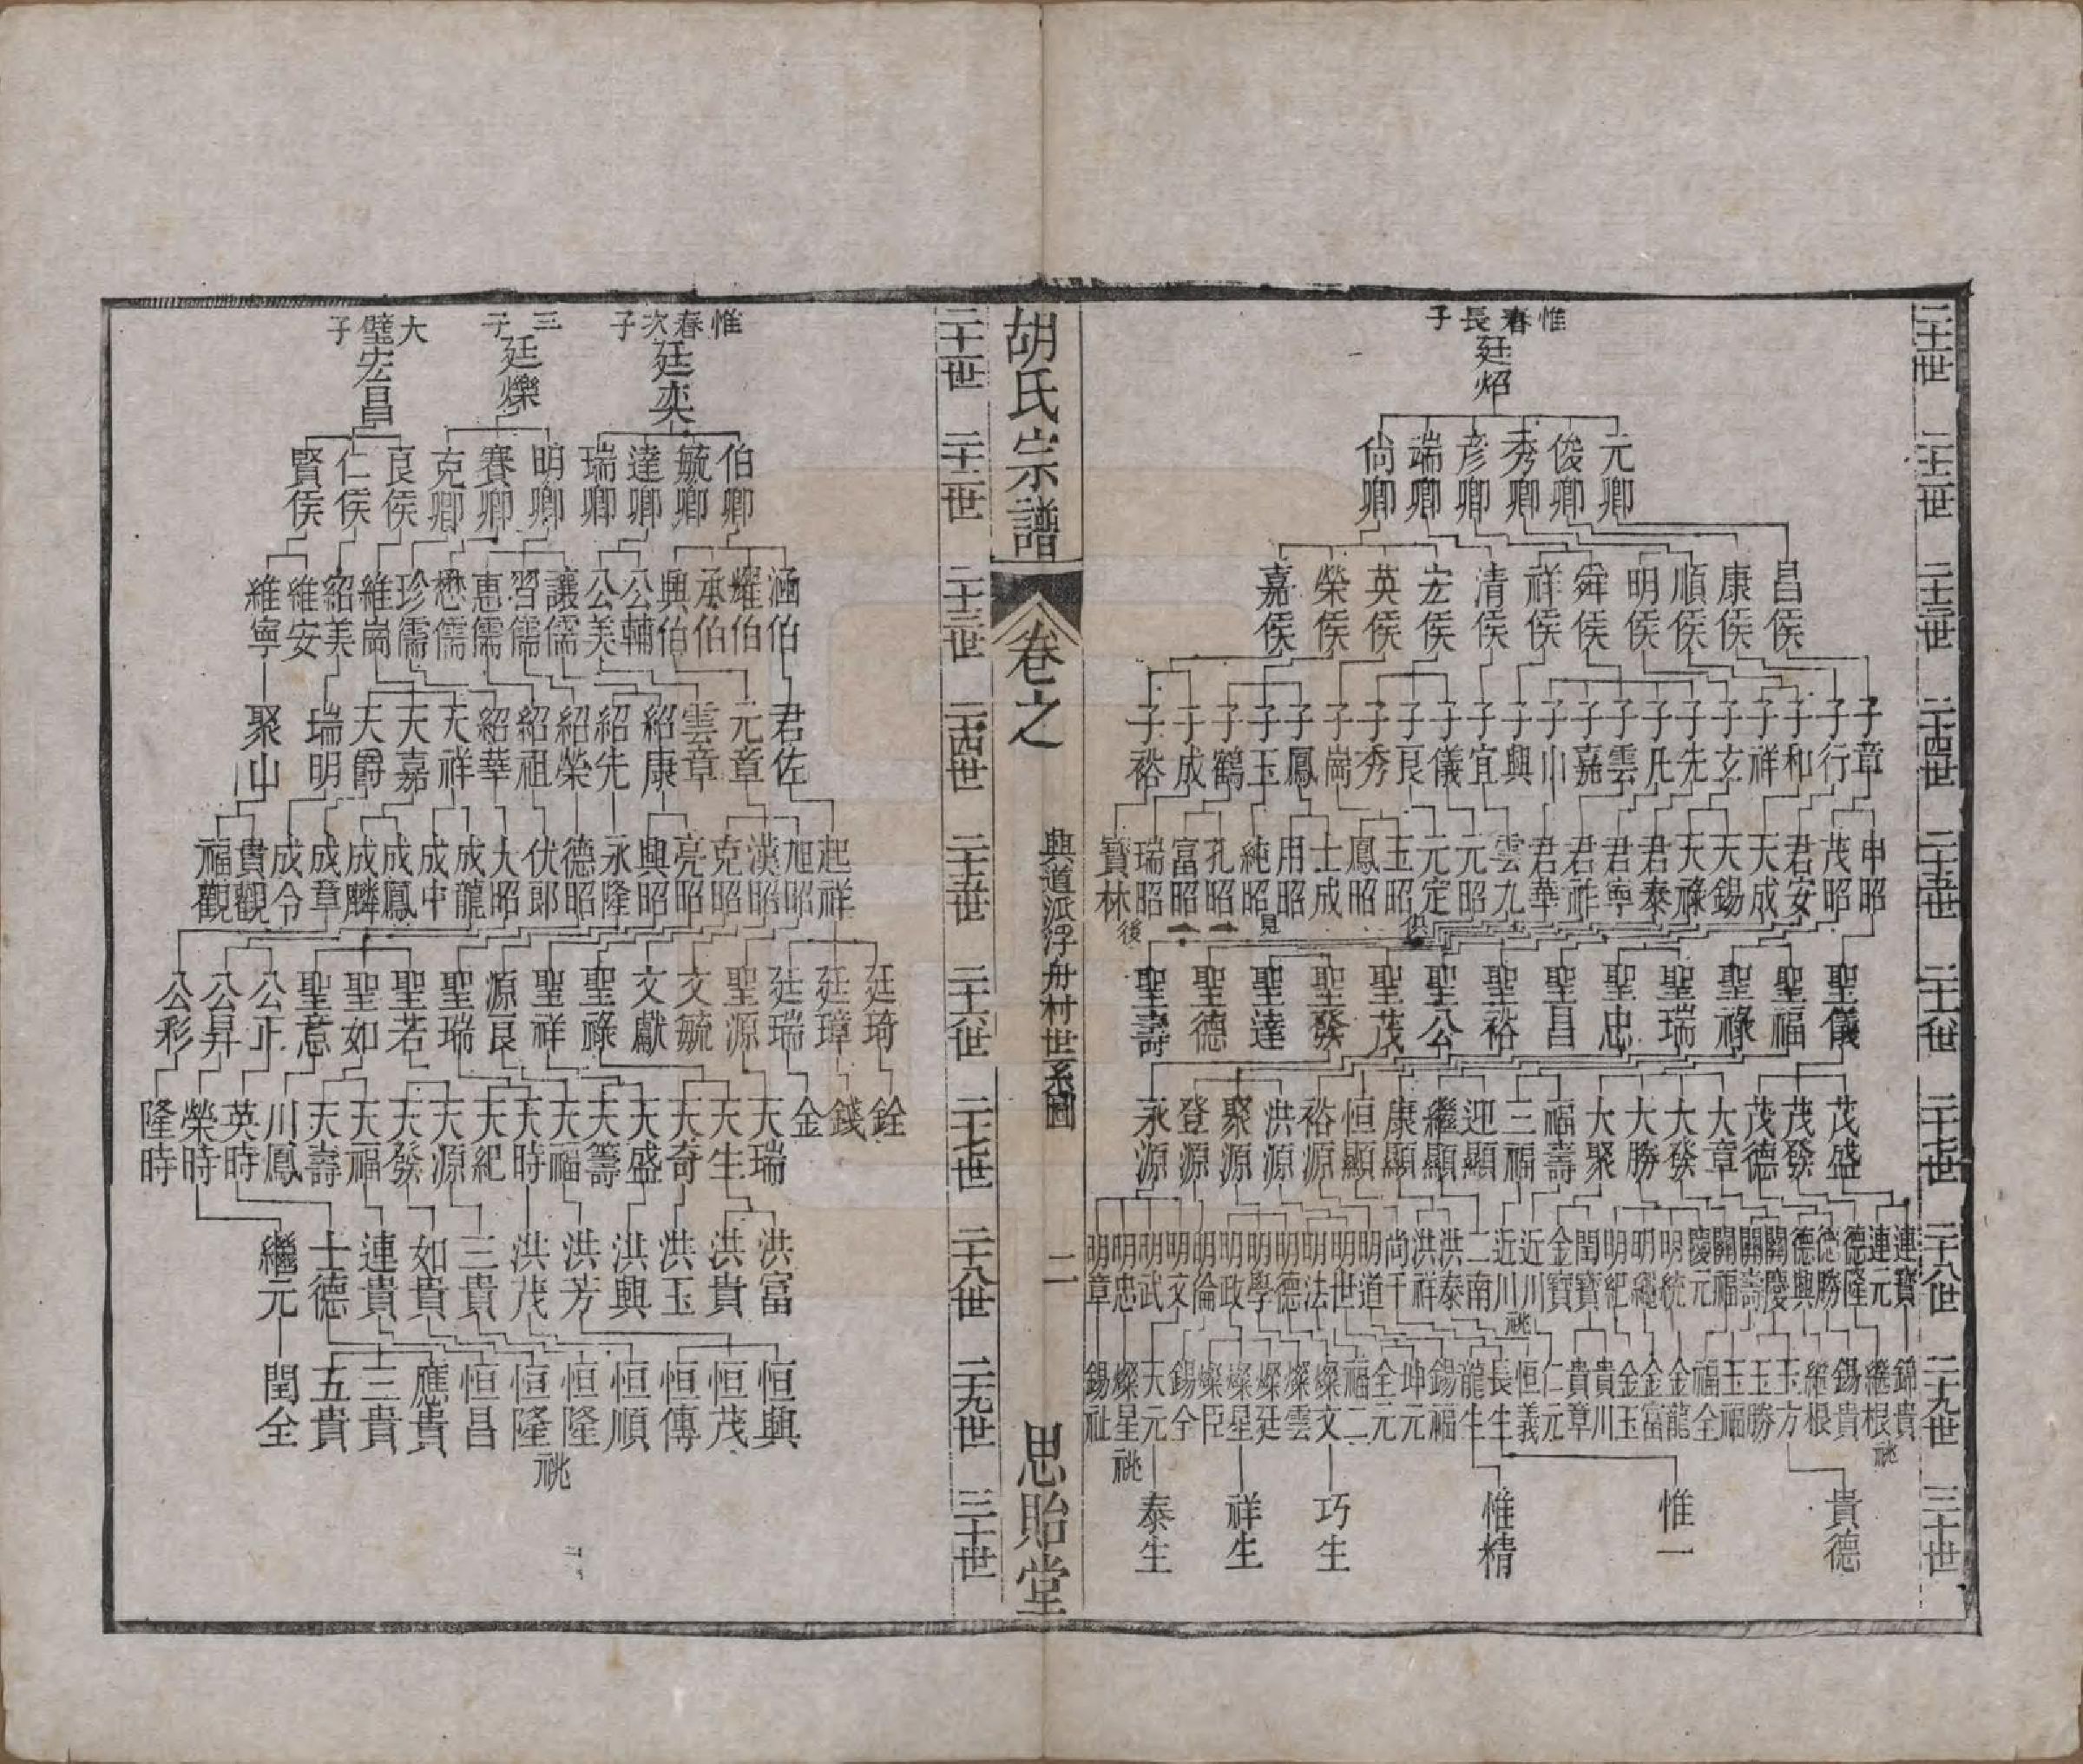 二十一世
惟春長子
廷炤
二十二世
元卿 俊卿 秀卿 彦卿 端卿 尙卿
二十三世
昌侯 康侯 順侯 明侯 舜侯 祥侯 清侯 宏侯 英侯 榮侯 嘉侯
二十四世
子章 子行 子和 子祥 子玄 子先 子凡 子雲 子嘉 子山 子興 子宜 子儀 子良 子秀 子崗 子鳳 子玉 子鶴 子成 子裕
二十五世
申昭 茂昭 君安 天成 天錫 天祿 君泰 君寧 君祚 君華 雲九 元昭 元定 玉昭 鳳昭 士成 用昭 純昭 孔昭 富昭 瑞昭 寶林
俱見二二後
二十六世
聖儀 聖福 聖祿 聖瑞 聖忠 聖昌 聖裕 聖公 聖茂 聖發 聖達 聖德 聖壽
二十七世
茂盛 茂發 茂德 大章 大發 大勝 大聚 福壽 三福 迎顯 繼顯 康顯 恒顯 裕源 洪源 聚源 登源 永源
二十八世
連寶 連元 德隆 德勝 德興 關慶 關壽 關福 慶元 明統 明繩 明紀 閏寶 金寶 近川 近川 二南 洪泰 洪祥 尚千 明道 明世 明法 明德 明學 明政 明倫 明文 明武 明忠 明章
祧
二十九世
錦貴 繼根 錫貴 繼根 玉方 玉勝 玉福 福全 金龍 金富 金玉 貴川 貴章 仁元 恒義 長生 龍生 錫福 坤元 全元 福二 燦文 燦雲 燦廷 燦星 燦臣 錫全 天元 燦星 錫祉
祧 祧
三十世
貴德 惟一 惟精 巧生 祥生 泰生
胡氏宗譜
卷之
興道派浮舟村世系圖
二
思貽堂
二十一世
惟春次子
廷奕
三子
廷爍
大璧子
宏昌
二十二世
伯卿 毓卿 達卿 瑞卿 明卿 賽卿 克卿 良侯 仁侯 賢侯
二十三世
涵伯 耀伯 承伯 興伯 公輔 公美 讓儒 習儒 惠儒 懋儒 珍儒 維崗 紹美 維安 維寧
二十四世
君佐 元章 雲章 紹康 紹先 紹榮 紹祖 紹華 天祥 天嘉 天爵 瑞明 聚山
二十五世
起祥 旭昭 漢昭 克昭 亮昭 興昭 永隆 德昭 伏郎 大昭 成龍 成中 成鳳 成麟 成章 成令 貴觀 福觀
二十六世
廷琦 廷璋 廷瑞 聖源 文毓 文獻 聖祿 聖祥 源良 聖瑞 聖若 聖如 聖意 公正 公昇 公彩
二十七世
銓 錢 金 天瑞 天生 天奇 天盛 天籌 天福 天時 天紀 天源 天發 天福 天壽 川鳳 英時 榮時 隆時
二十八世
洪富 洪貴 洪玉 洪興 洪芳 洪茂 三貴 如貴 連貴 士德 繼元
二十九世
恒興 恒茂 恒傳 恒順 恒隆 恒隆 恒昌 應貴 三貴 五貴 閏全
祧
三十世